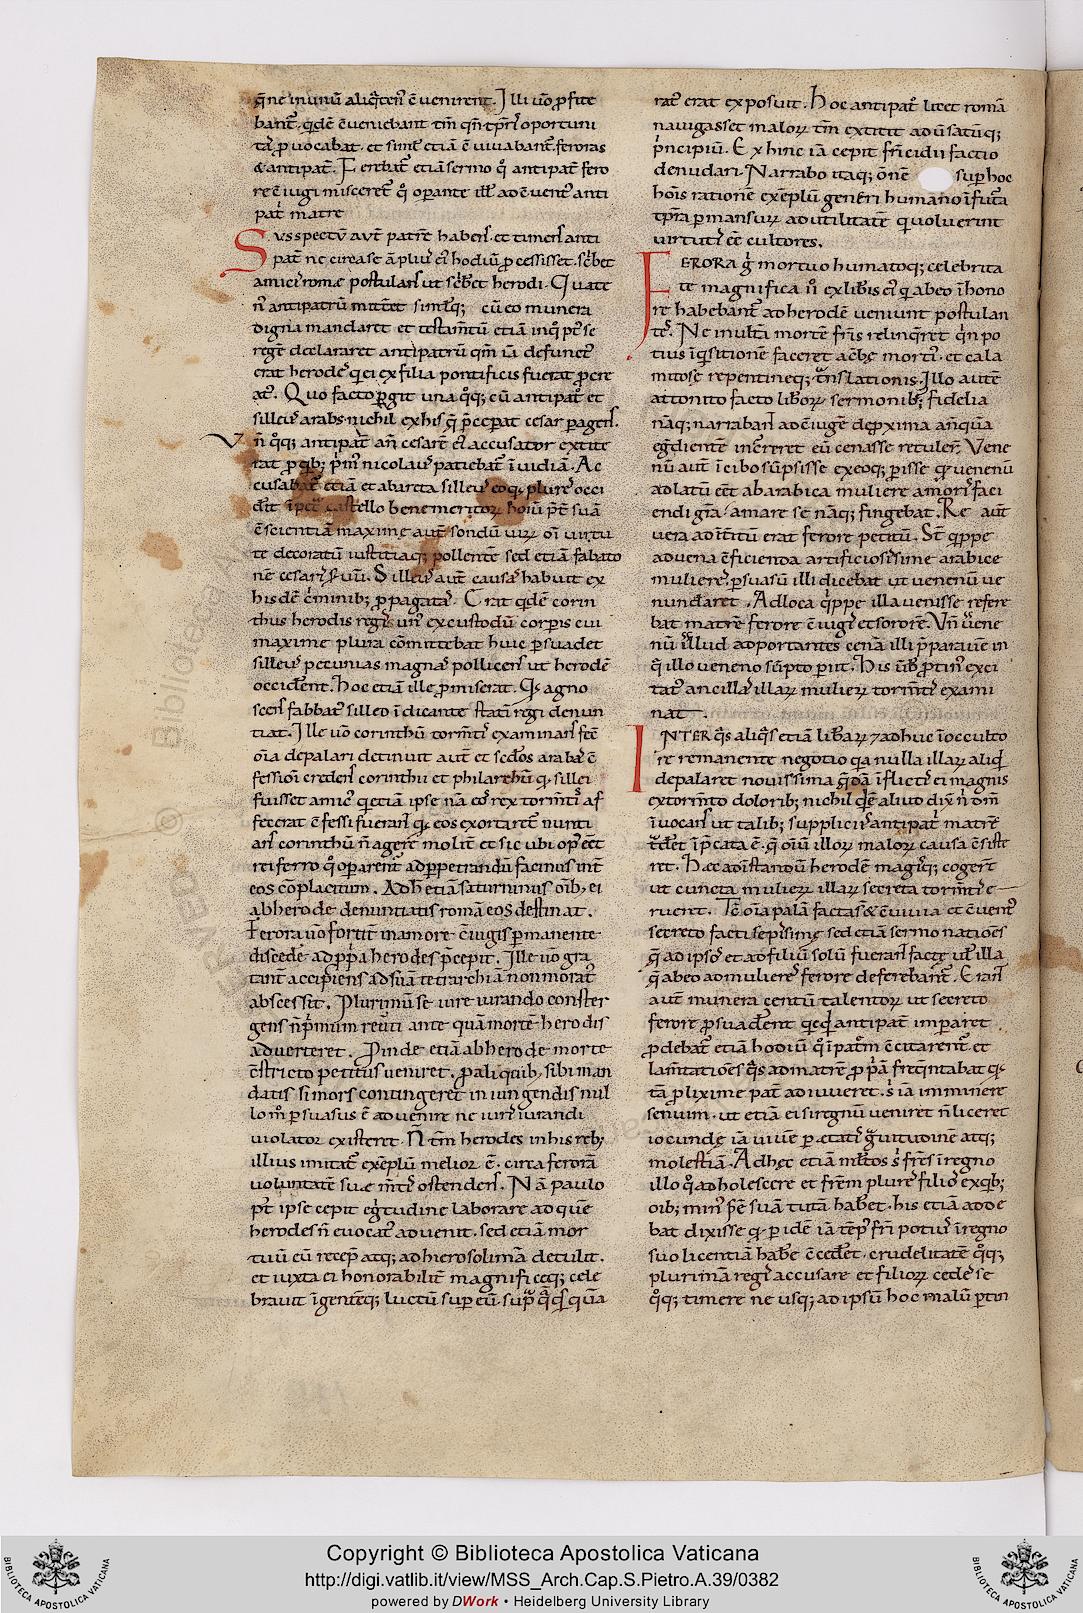 q̄ne in unū aliq̄ten᷒ c̄uenirent. Illi uō ꝓfite
bant᷒ q̄dē c̄ueniebant tm̄ qn̄ tp̄ri᷒ oportuni
tas ꝓuocabat. et simł etiā c̄uiuabant᷒ feroras
& antipat᷒. Ferebat᷒ etiā sermo qꝭ antipat᷒ fero
re c̄iugi misceret᷒ qꝭ operante illi᷒ ad c̄uent᷒ anti
patꝭ matre
Suspectū aut̄ patrē habens et timens anti
pat᷒ ne circa se āpli᷒ ei᷒ hodiū ꝓcessisset. sc̄bet
amicis rome postulans ut sc̄bet herodi. Quate
n᷒ antipatrū mitteret simłq; cū eo munera
digna mandaret et testam̄tū etiā in q̄ p᷒ se
regē declararet antipatrū qm̄ iā defunct᷒
erat herodes qi ex filia pontificis fuerat ꝓcre
at᷒. Quo facto ꝑgit una qꝭq; cū antipat᷒ et
silleus arabs nichil ex his q̄ p̄ceperat cesar ꝑagens.
Vn̄ qꝭq; antipat᷒ añ cesarē ei᷒ accusator extite
rat ꝓ qib; p̄m᷒ nicolaus patiebat᷒ īuidiā. Ac
cusabat᷒ etiā et ab areta silleus eo q; plures occi
dit castello bene meritorꝝ hoīū p̄t᷒ suā
c̄scientiā maxime aut̄ sondū uirū oī uirtu
te decoratū iustitiaq; pollentē sed etiā fabato
nē cesaris suū. Silleus aut̄ causā habuit ex
hisdē c̄minib; ꝓpagatā. Erat q̄dē corin
thus herodis regis un᷒ ex custodū corꝑis cui
maxime plura cōmittebat huic ꝑsuadet
silleus pecunias magnas pollicens ut herodē
occideret. hoc etiā ille ꝓmiserat. Qꝭ agno
scens fabbat᷒ silleo īdicante statī regi denun
tiat. Ille uō corinthū torm̄tis examinans fec̄
oīa depalari detinuit aut̄ et sedos arabas c̄
fessioī credens corinthii et philarchū qꝭ sillei
fuisset amic᷒ qi etiā ipse nā eos rex torm̄tis af
fecerat c̄fessi fuerant qꝭ eos exortaret᷒ nunti
ans corinthū n̄ agere moliri et sic ubi op᷒ eēt
rei ferro qꝭ oparent᷒ ad ꝑpetrandū facinus int᷒
eos cōplacitum. Ad h etiā saturninus oīb; ei
ab herode denuntiatis romā eos destinat.
Ferora uō fortit᷒ in amore c̄iugis ꝑmanente
discedē ad ꝓpria herodes p̄cepit. Ille uō gra
tant᷒ accipiens ad suā tetrarchiā non morat᷒
abscessit. Plurimū se iure iurando conster
gens n̄ p̄mum reuti ante quā morte herodis
aduerteret. Dinde etiā ab herode morte
c̄stricto petitus ueniret. ꝓ aliquib; sibi man
datis si mors contingeret iniungendis nul
lom̄ ꝑsuasus ē aduenire ne iuris iurandi
uiolator existeret. N̄ tm̄ herodes in his reb;
illius imitat᷒ exēplū melior ē. circa ferorā
uoluntatē sue m̄tis ostendens. Nā paulo
p᷒ ipse cepit eḡtudine laborare ad quē
herodes n̄ euocat᷒ aduenit. sed etiā mor
tuū eū recep̄ atq; ad hierosolimā detulit.
et iuxta ei honorabilit᷒ magnificeq; cele
brauit īgentēq; luctū super eū. supra q̄ qꝭ quā
rat᷒ erat exposuit. Hoc antipat᷒ licet romā
nauigasset malorꝝ tm̄ extitit aduersariusq;
p̄ncipiū. Ex hinc iā cepit fr̄icidii factio
denudari. Narrabo itaq; oēm sup hoc
hoīs rationē exēplū generi humano ī futura
tp̄ra ꝑmansurꝝ ad utilitatē qi uoluerint
uirtutis eē cultores.
Ferora ḡ mortuo humatoq; celebrita
te magnifica ii᷒ ex libris ei᷒ q̄ ab eo ī hono
re habebant᷒ ad herodē ueniunt postulan
tes. Ne inultā mortē fr̄is relinqret qin po
tius īqisitionē faceret acerbe mortis. et cala
mitose repentineq; translationis. Illo autē
attonito facto liborꝝ sermonib; fidelia
nāq; narrabant ad c̄iugē de ꝓxima anq̄ua
eḡdientē incurreret eū cenasse retulert. Vene
nū aut̄ ī cibo sūpsisse ex eoq; ꝑisse qꝭ uenenū
adlatū eēt ab arabica muliere amoris faci
endi gr̄a. amare se nāq; fingebat. Re aut̄
uera ad ītītū erat ferore petitū. St̄ q̄ppe
aduena c̄ficienda artificiosissime arabice
mulieres. ꝑsuasū illi dicebat ut uenenū ue
nundaret. Ad loca q̄ppe illa uenisse refere
bat matrē ferore c̄iugis et sororē. Vn̄ uene
nū illud adportantes cenā illi p̄parauere in
q̄ illo ueneno sūpto ꝑiit. His ūbis ꝓtin᷒ exci
tat᷒ ancillas illarꝝ mulierꝝ torm̄tis exami
nat
Inter qs aliqs etiā libarꝝ ⁊ adhuc ī occulto
re remanente negotio qa nulla illarꝝ aliqd
depalaret nouissima q̄dā īflictis ei magnis
ex torm̄to dolorib; nichil qdē aliud dix̄ n̄ dm̄
īuocans ut talib; suppliciis antipatꝭ matrē
t̄det īp̄cata ē. q̄ oīū illorꝝ malorꝝ causa c̄siste
ret. Hec ad īstandū herodē magisq; cogere
ut cuncta mulierꝝ illarꝝ secreta torm̄tis e
ruerent. Tc̄ oīa palā facta st & c̄uiuia et c̄uent᷒
secreto facti sepissime sed etiā sermonatiōes
q̄ ad ipsos et ad filiū solū fuerant facte uł illa
q̄ ab eo ad mulieres ferore deferebant᷒. Erant
aut̄ munera centū talentorꝝ ut secreto
ferore ꝓsuaderent qicqd antipat᷒ imꝑaret
ꝓdebat᷒ etiā hodiū qꝭ ī patrem c̄citarent᷒. et
lam̄tatiōes qs ad matrē ꝓpriā freqntabat qꝭ
tā ꝓlixime pat᷒ aduiueret. s; iā imminere
senium. ut etiā ei si regnū ueniret n̄ liceret
iocunde iā uiuere ꝑ etatis grauitudinē atq;
molestiā. Ad hec etiā mltos s; fr̄es ī regno
illo qꝭ adholescere et frem̄ plures filios ex qib;
oīb; min᷒ spē suā tutā haberet. his etiā adde
bat dixisse qꝭ ꝑidē iā tēp᷒ frī poti᷒ ī regno
suo licentiā habē c̄cederet. crudelitatē qꝭq;
plurimā regis accusare et filiorꝝ cedes se
qꝭq; timere ne usq; ad ipsū hoc malū ꝑtin
Copyright © Biblioteca Apostolica Vaticana
http://digi.vatlib.it/view/MSS_Arch.Cap.S.Pietro.A.39/0382
powered by DWork • Heidelberg University Library